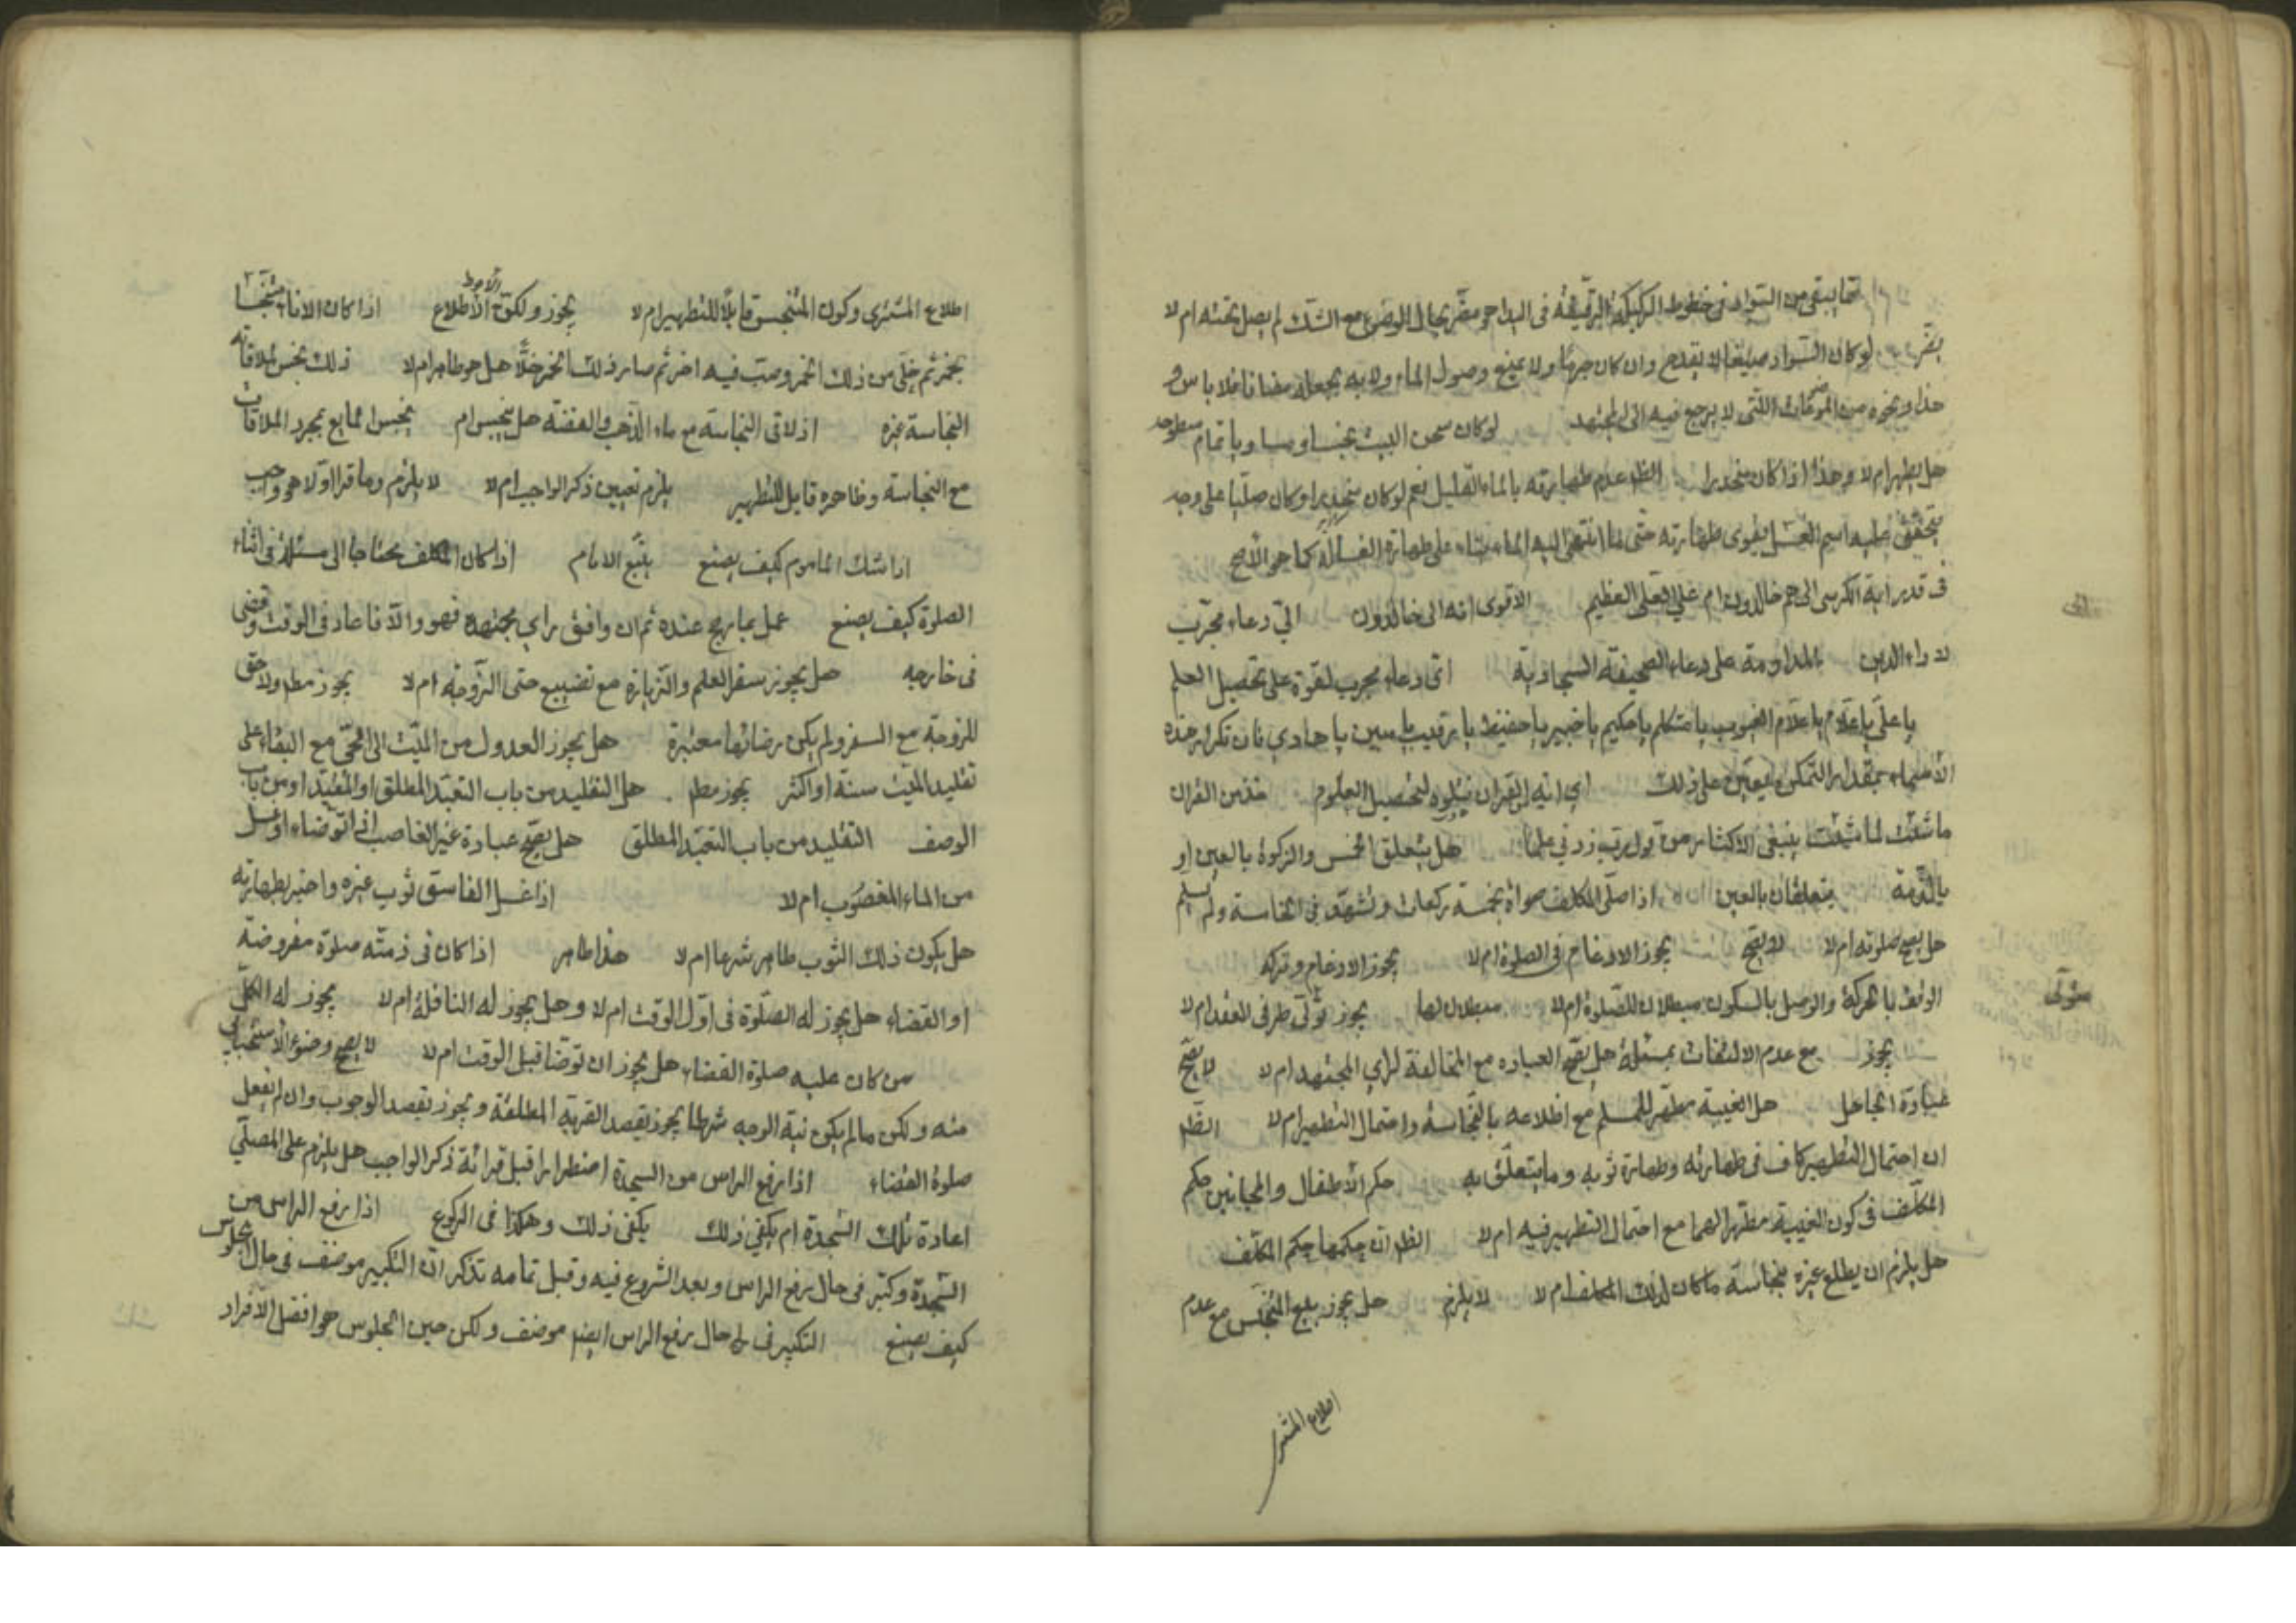 ما يبقى من السواد في خطوط الركبة الرقيقة في البدن هو مضر بحال الوضوء مع الشك لم يصل تحته ام لا
يضر لو كان السواد صبغا لا يقدح وان كان جرما ولا يمنع وصول الماء ولا به يجعله مضافا فلا باس و
هذا ونحوه من الموضوعات اللتي لا يرجع فيه الى المجتهد لو كان سحن البيت نجسا ومساويا تمام سطوحه
هل يطهر ام لا وهذا اذا كان منحدرا الظ عدم طهارته بالماء القليل نعم لو كان منحدرا وكان صلبا على وجه
يتحقق عليه اسم الغسل يقوى طهارته حتى لما انتهى اليه الماء بناء على طهارة الغسالة كما هو الاصح
في قدر اية الكرسي الى هم خالدون ام على العلي العظيم الاقوى انه الى خالدون اي دعاء مجرب
لاداء الدين المداومة على دعاء الصحيفة السجادية اي دعاء مجرب لقوة على تحصيل العلم
يا علي يا علام يا علام الغيوب يا متكلم يا حكيم يا خبير يا حفيظ يا رقيب يا مبين يا هادي فان تكرار هذه
الاسماء بمقدار التمكن يعين على ذلك اي اية من القران نتلوه لتحصيل العلوم خذ من القران
ما شئت لما شئت ينبغي الاكثار من قول رب زدني علما هل يتعلق الخمس والزكوة بالعين او
بالذمة يتعلقان بالعين اذا صلى المكلف سهوا خمسة ركعات وتشهد في الخامسة ولم يسلم
هل يصح صلوته ام لا لا يصح يجوز الادغام في الصلوة ام لا يجوز الادغام وتركه
الوقف بالحركة والوصل بالسكون مبطلان للصلوة ام لا مبطلان لها يجوز تولى طرفي للعقد ام لا
تولى
يجوز مع عدم الالتفات بمسئلة هل يصح العبادة مع المخالفة لراي المجتهد ام لا لا يصح
عبادة الجاهل هل الغيبة مطهر للمسلم مع اطلاعه بالنجاسة واحتمال التطهير ام لا الظ
ان احتمال التطهير كاف في طهارته وطهارة ثوبه وما يتعلق به حكم الاطفال والمجانين حكم
المكلف في كون الغيبة مطهرا لهما مع احتمال التطهير فيه ام لا الظ ان حكمها حكم المكلف
هل يلزم ان يطلع غيره بنجاسة ما كان لذلك المكلف ام لا لا يلزم هل يجوز بيع المتنجس مع عدم
اطلاع المشترى
اطلاع المشترى وكون المتنجس قابلا للتطهير ام لا يجوز ولكن الاحوط الاطلاع اذا كان الاناء متنجسا
بخمر ثم خلى من ذلك الخمر وصب فيه اخر ثم صار ذلك الخمر خلا هل هو طاهر ام لا ذلك نجس لملاقاته
النجاسة غيره اذ لاقى النجاسة مع ماء الذهب والفضة هل ينجس ام ينجس المايع بمجرد الملاقات
مع النجاسة وظاهره قابل للتطهير يلزم تعيين ذكر الواجب ام لا لا يلزم وما قرا اولا هو واجب
اذا شك الماموم كيف يصنع يتبع الامام اذا كان المكلف محتاجا الى مسئلة في اثناء
الصلوة كيف يصنع عمل بما يرجح عنده ثم ان وافق براي مجتهده فهو والا فاعاد في الوقت وقضى
في خارجه هل يجوز سفر العلم والزيارة مع تضييع حتى الزوجة ام لا يجوز مطم ولا حق
للزوجة مع السفر ولم يكن رضائها معتبرة هل يجوز العدول من الميت الى الحي مع البقاء على
تقليد الميت سنة او اكثر يجوز مطم هل التقليد من باب التعبد المطلق او المقيد او من باب
الوصف التقليد من باب التعبد المطلق هل يصح عبادة غير الغاصب اذا توضاء او غسل
من الماء المغصوب ام لا اذا غسل الفاسق ثوب غيره واخبر بطهارته
هل يكون ذلك الثوب طاهر شرعا ام لا هذا طاهر اذا كان في ذمته صلوة مفروضة
او القضاء هل يجوز له الصلوة في اول الوقت ام لا وهل يجوز له النافلة ام لا يجوز له الكل
من كان عليه صلوة القضاء هل يجوز ان توضا قبل الوقت ام لا لا يصح وضوء الاستحبابي
منه ولكن ما لم يكن نية الوجه شرطا يجوز بقصد القربة المطلقة ويجوز بقصد الوجوب وان لم يفعل
صلوة القضاء اذا رفع الراس من السجدة اضطرارا قبل قرائة ذكر الواجب هل يلزم على المصلي
اعادة تلك السجدة ام يكفي ذلك يكفي ذلك وهكذا في الركوع اذا رفع الراس من
السجدة وكبر في حال رفع الراس وبعد الشروع فيه وقبل تمامه تذكر ان التكبير موضفه في حال الجلوس
كيف يصنع التكبير في حال رفع الراس ايضا موضف ولكن حين الجلوس هو افضل الافراد